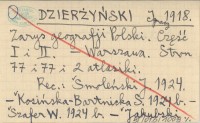 DZIERŻYŃSKI 1918.
Zarys geografji Polski. Część
I i II. – Warszawa. Stron
77 i 77 i 2 atlasiki.
Rec.: Smoleński J. 1924.
– Kosińska-Bartnicka S. 1924. –
Szafer W. 1924 – Jakubski